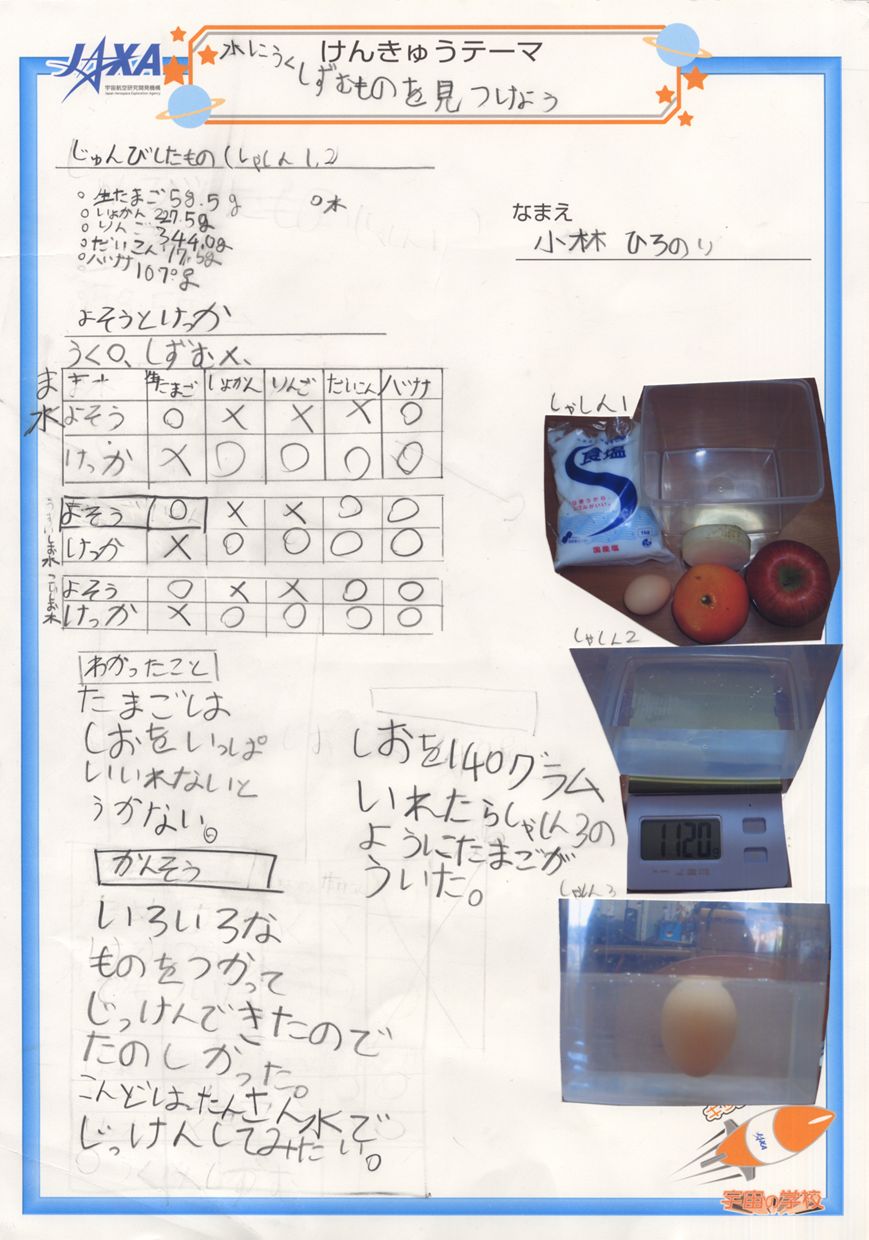 JAXA
宇宙航空研究開発機構
Japan Aerospace Exploration Agency
けんきゅうテーマ
水にうく しずむものを見つけよう
じゅんびしたもの(しゃしん1,2)
○生たまご58.5g
○いよかん227.5g
○りんご344.0g
○だいこん17.5g
○バナナ107.0g
○水
なまえ
小林 ひろのり
よそうとけっか
うく○、しずむ×、
ま水 生たまご いよかん りんご だいこん バナナ
よそう ○ × × × ○
けっか × ○ ○ ○ ○
うすいしお水
よそう ○ × × ○ ○
けっか × ○ ○ ○ ○
こいしお水
よそう ○ × × ○ ○
けっか × ○ ○ ○ ○
わかったこと
たまごは
しおをいっぱ
いいれないと
うかない。
しおを140グラム
いれたらしゃしん3の
ようにたまごが
ういた。
かんそう
いろいろな
ものをつかって
じっけんできたので
たのしかった。
こんどは、たんさん水で
じっけんしてみたい。
しゃしん1
食塩
国産塩
しゃしん2
1120g
しゃしん3
JAXA
宇宙の学校